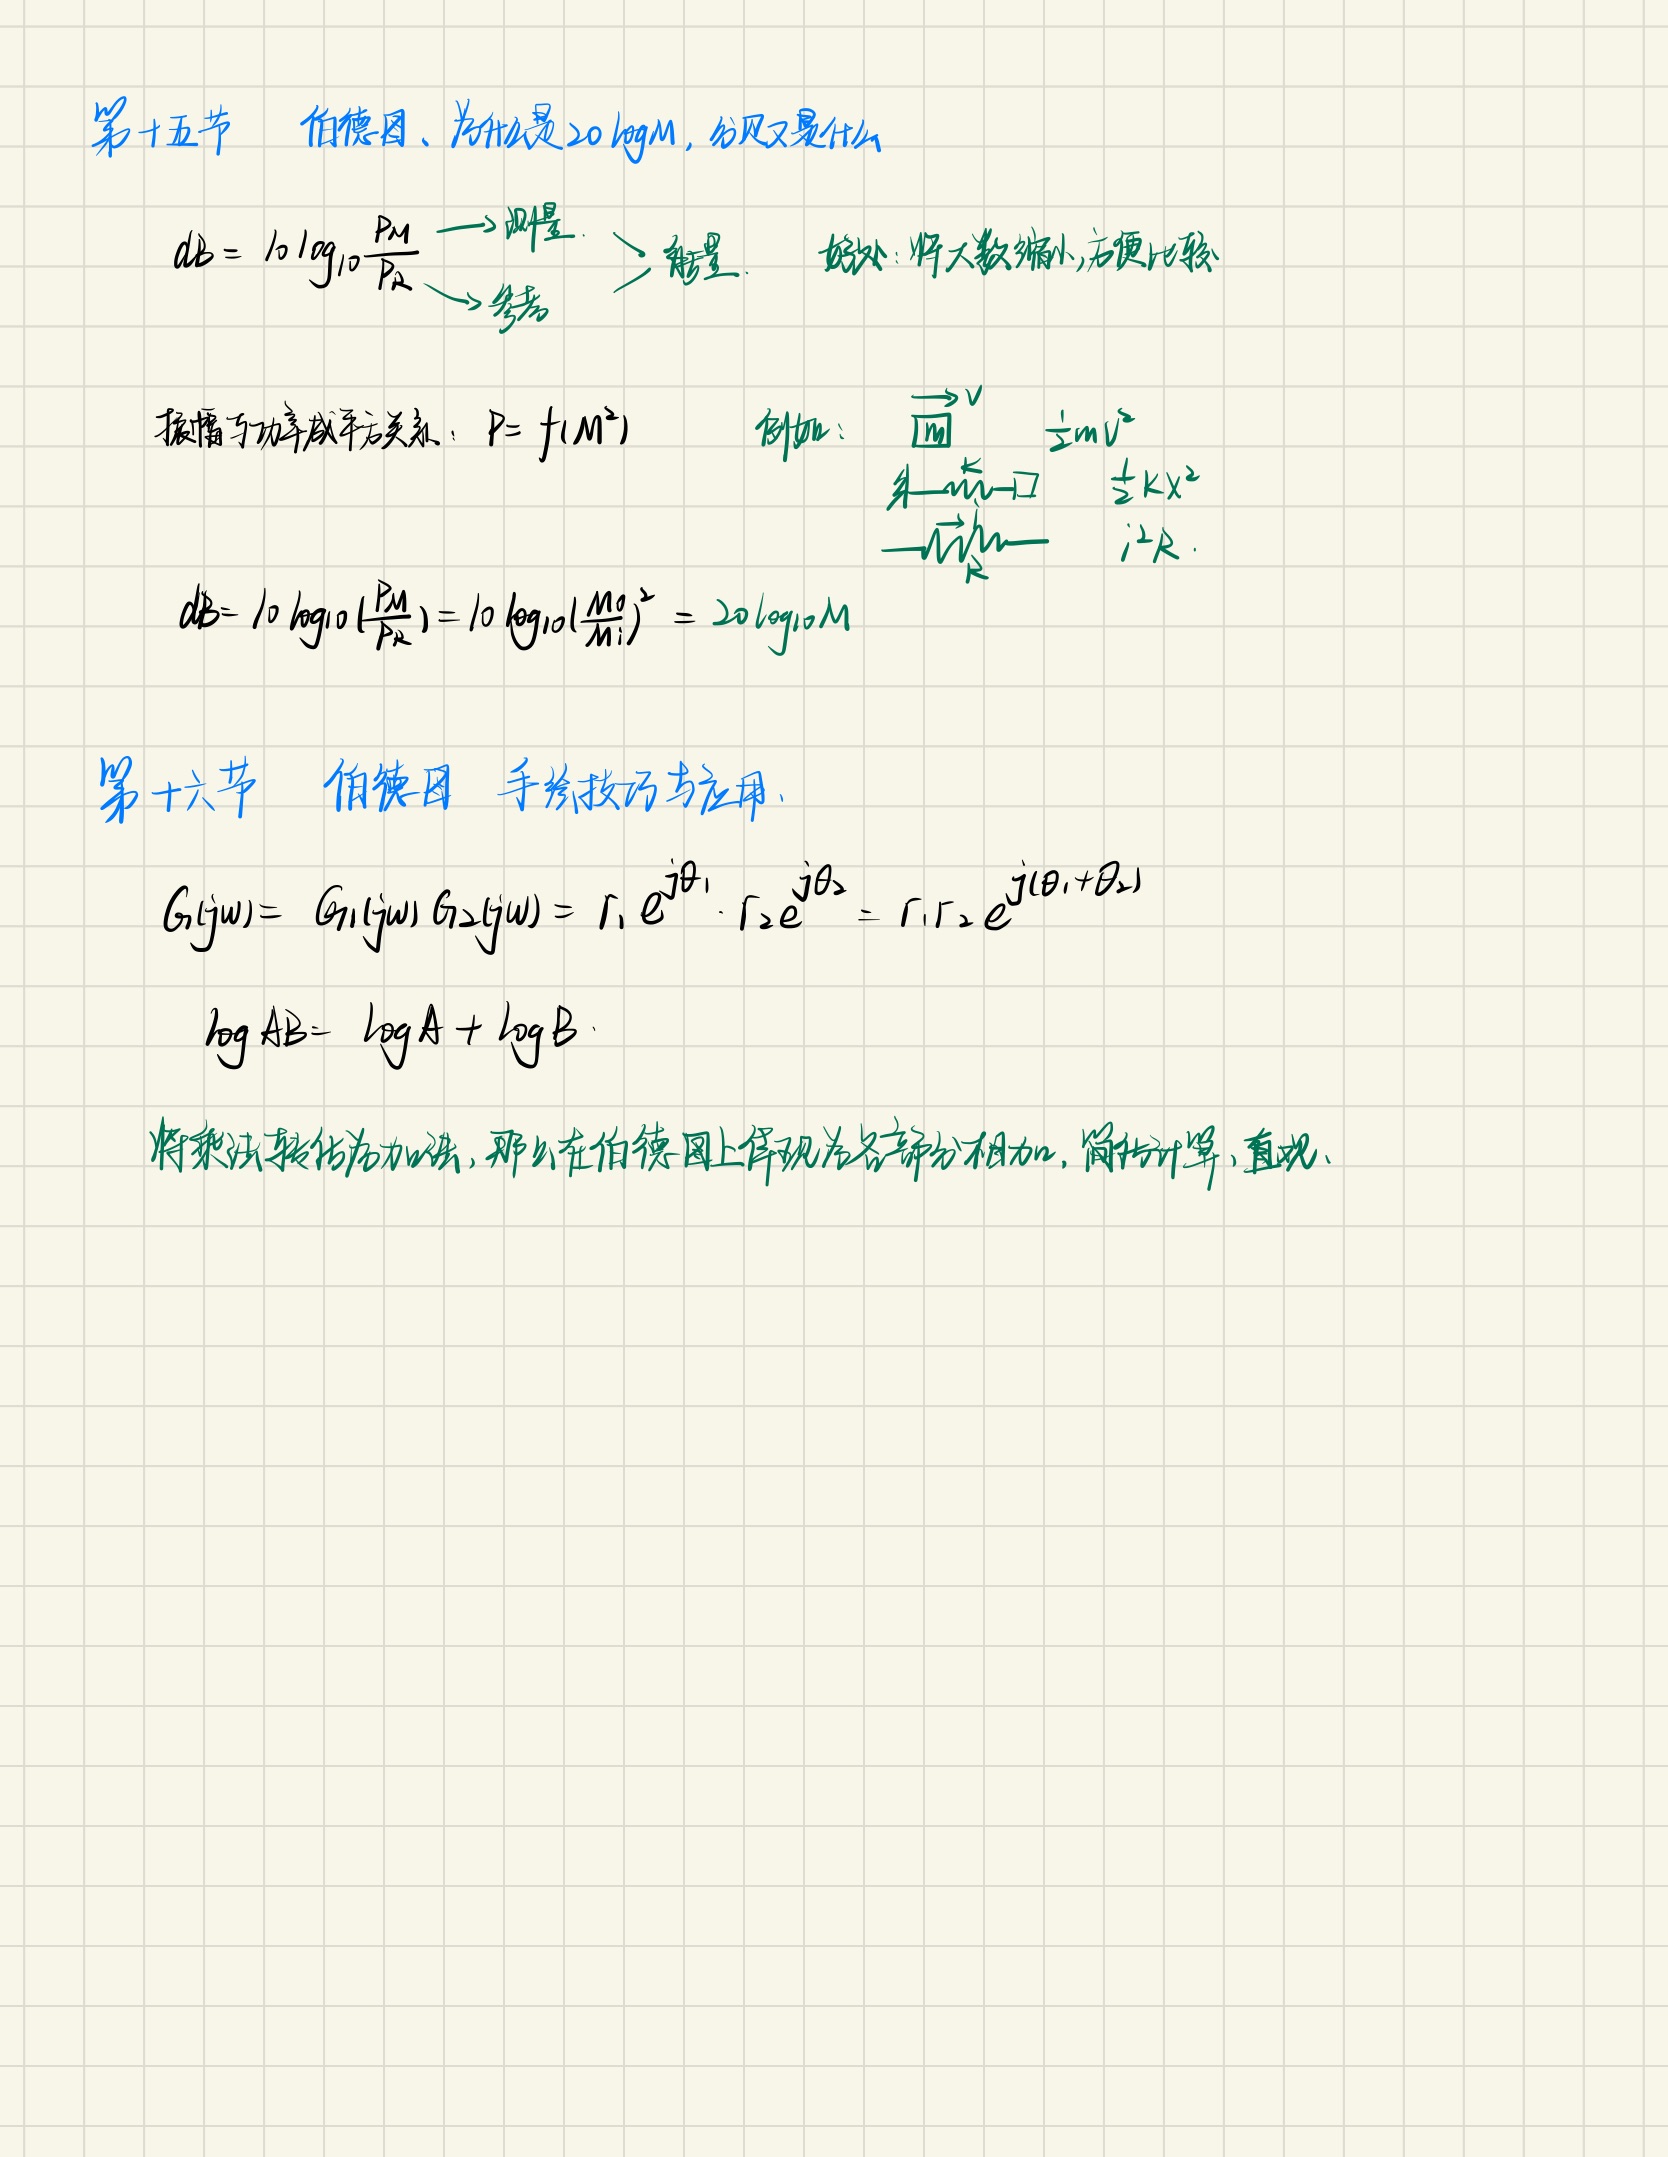 第十五节 伯德图、为什么是20logM,分贝又是什么
dB = 10 log₁₀ PM/PR → 测量 → 能量 好处:将大数缩小,方便比较
→ 参考
振幅与功率成平方关系: P = f(M²) 例如: → v m ½mv²
K ½Kx²
→ i R i²R.
dB = 10 log₁₀(PM/PR) = 10 log₁₀(Mo/Mi)² = 20log₁₀M
第十六节 伯德图 手绘技巧与应用、
G(jw) = G₁(jw) G₂(jw) = r₁e^{jθ₁} · r₂e^{jθ₂} = r₁r₂e^{j(θ₁+θ₂)}
log AB = log A + log B.
将乘法转化为加法,那么在伯德图上体现为各部分相加,简化计算、直观、